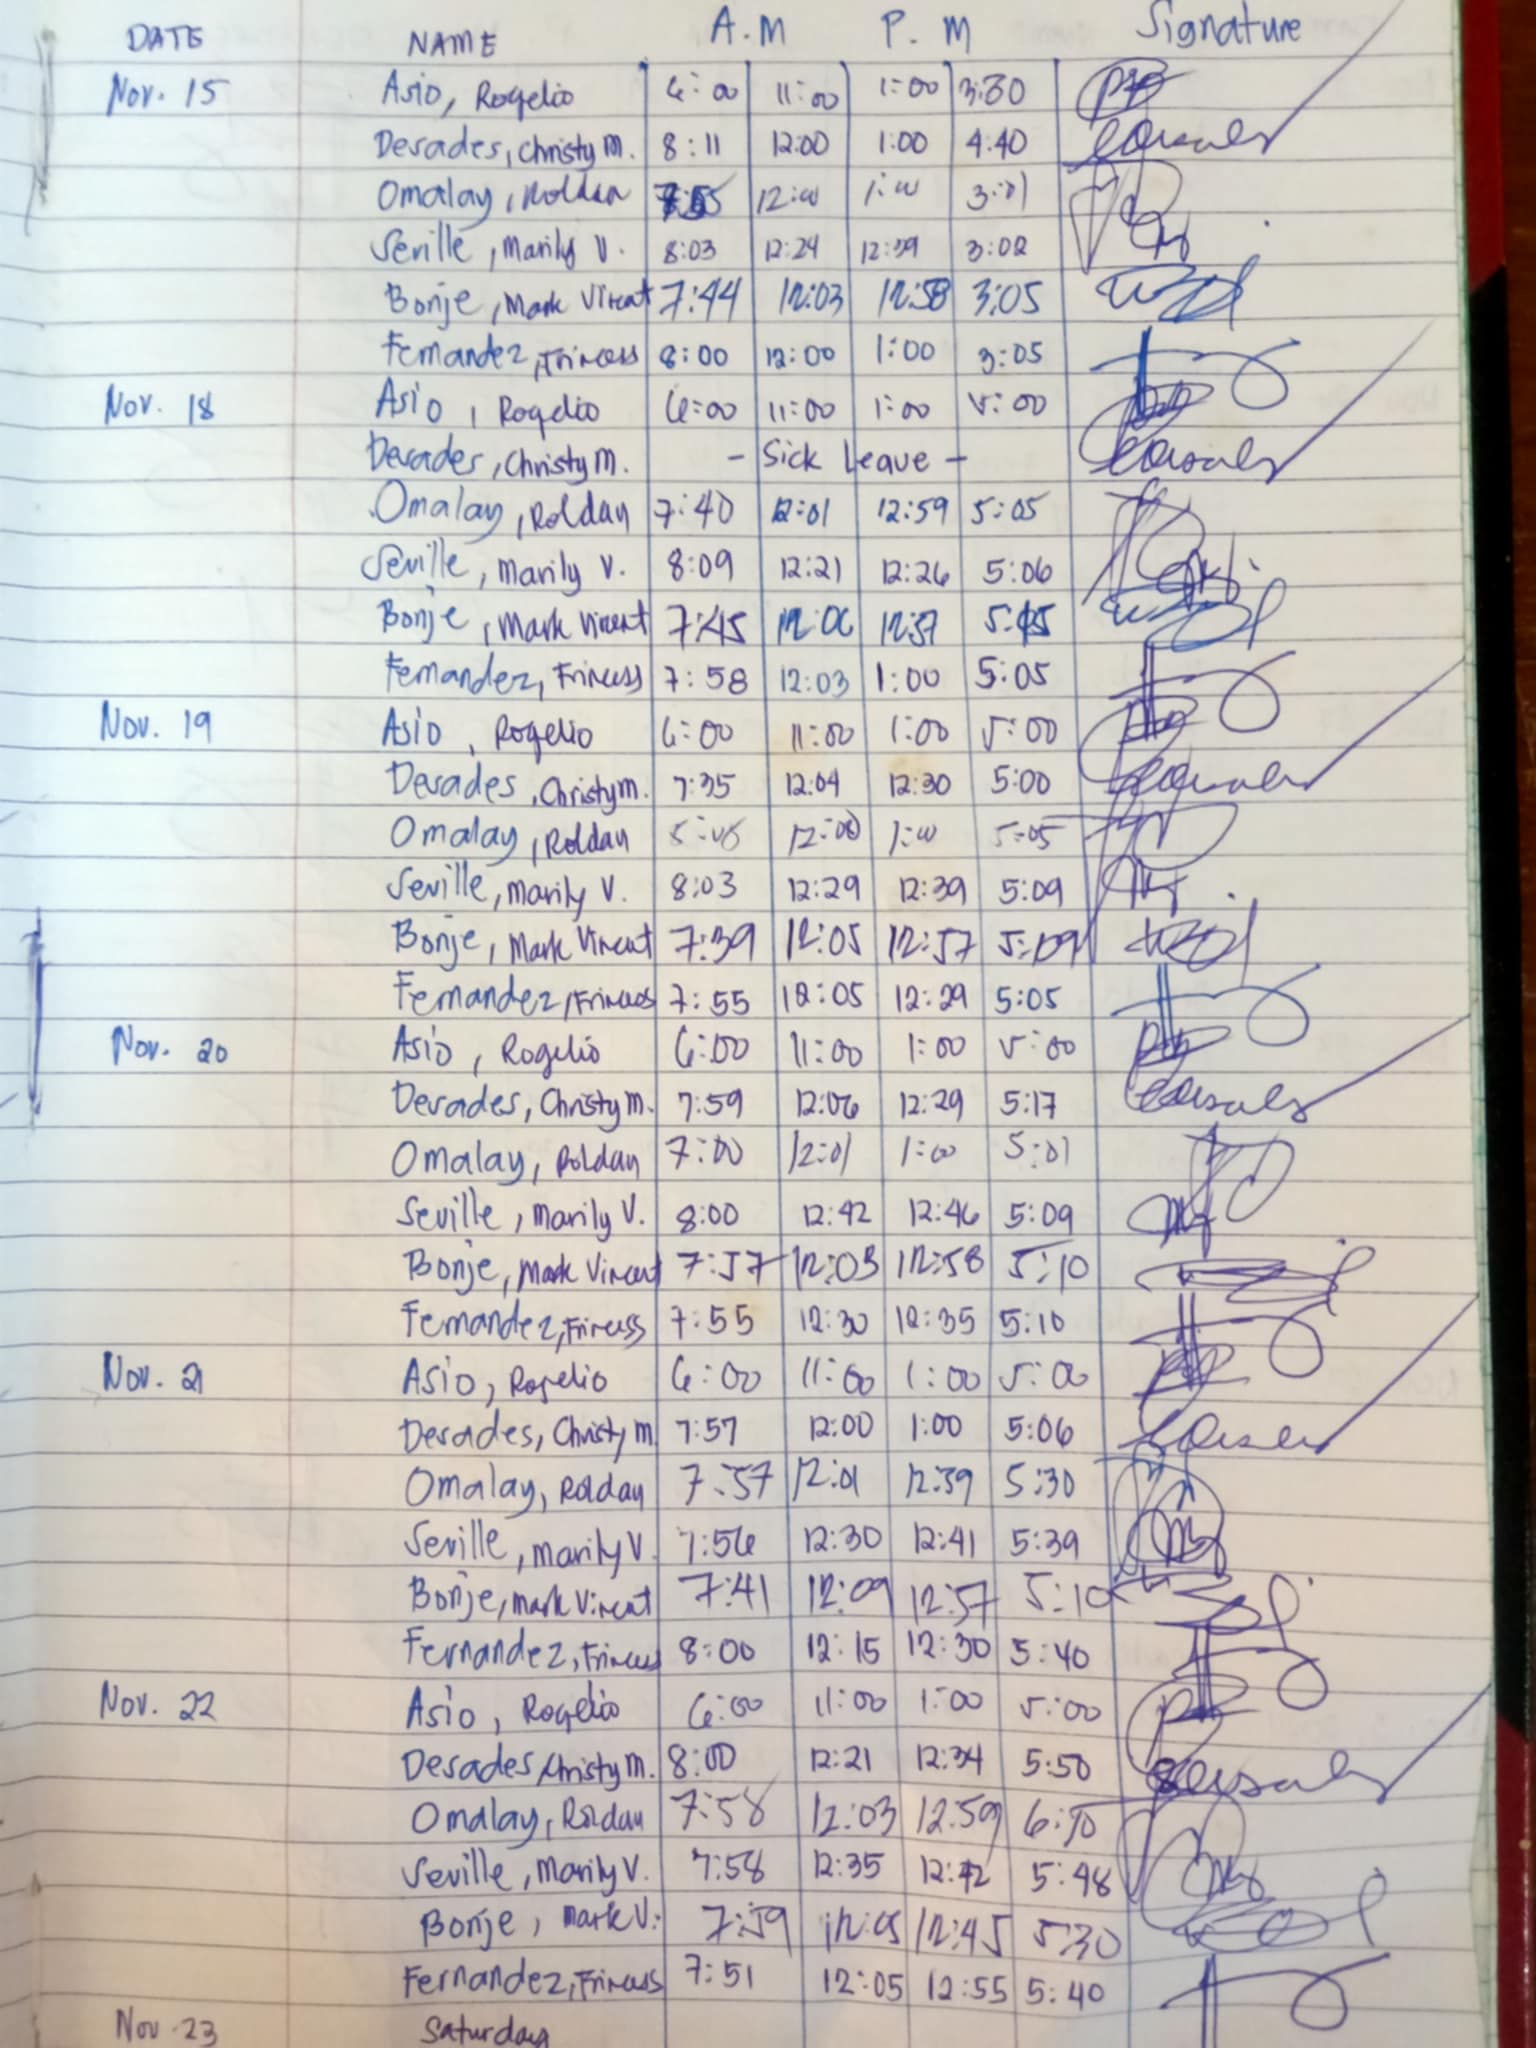 DATE NAME A.M P.M Signature
Nov. 15 Asio, Rogelio 6:00 11:00 1:00 3:30
Desades, Christy M. 8:11 12:00 1:00 4:40
Omalay, Roldan 12:00 1:00 3:01
Seville, Marily V. 8:03 12:24 12:39 3:02
Bonje, Mark Vincent 7:44 12:03 12:58 3:05
Fernandez, Princess 8:00 12:00 1:00 3:05
Nov. 18 Asio, Rogelio 6:00 11:00 1:00 5:00
Desades, Christy M. - Sick Leave -
Omalay, Roldan 7:40 12:01 12:59 5:05
Seville, Marily V. 8:09 12:21 12:26 5:06
Bonje, Mark Vincent 7:45 12:06 12:57
Fernandez, Princess 7:58 12:03 1:00 5:05
Nov. 19 Asio, Rogelio 6:00 11:00 1:00 5:00
Desades, Christy M. 7:35 12:04 12:30 5:00
Omalay, Roldan 12:00 1:00 5:05
Seville, Marily V. 8:03 12:29 12:39 5:09
Bonje, Mark Vincent 7:39 12:05 12:57 5:09
Fernandez, Princess 7:55 12:05 12:29 5:05
Nov. 20 Asio, Rogelio 6:00 11:00 1:00 5:00
Desades, Christy M. 7:59 12:06 12:29 5:17
Omalay, Roldan 7:00 12:01 1:00 5:01
Seville, Marily V. 8:00 12:42 12:46 5:09
Bonje, Mark Vincent 7:57 12:03 12:58 5:10
Fernandez, Princess 7:55 12:30 12:35 5:10
Nov. 21 Asio, Rogelio 6:00 11:00 1:00 5:00
Desades, Christy M. 7:57 12:00 1:00 5:06
Omalay, Roldan 7:57 12:01 12:39 5:30
Seville, Marily V. 7:56 12:30 12:41 5:39
Bonje, Mark Vincent 7:41 12:09 12:57 5:10
Fernandez, Princess 8:00 12:15 12:30 5:40
Nov. 22 Asio, Rogelio 6:00 11:00 1:00 5:00
Desades, Christy M. 8:00 12:21 12:34 5:50
Omalay, Roldan 7:58 12:03 12:59 6:10
Seville, Marily V. 7:58 12:35 12:42 5:48
Bonje, Mark V. 7:59 12:05 12:45 5:30
Fernandez, Princess 7:51 12:05 12:55 5:40
Nov. 23 Saturday